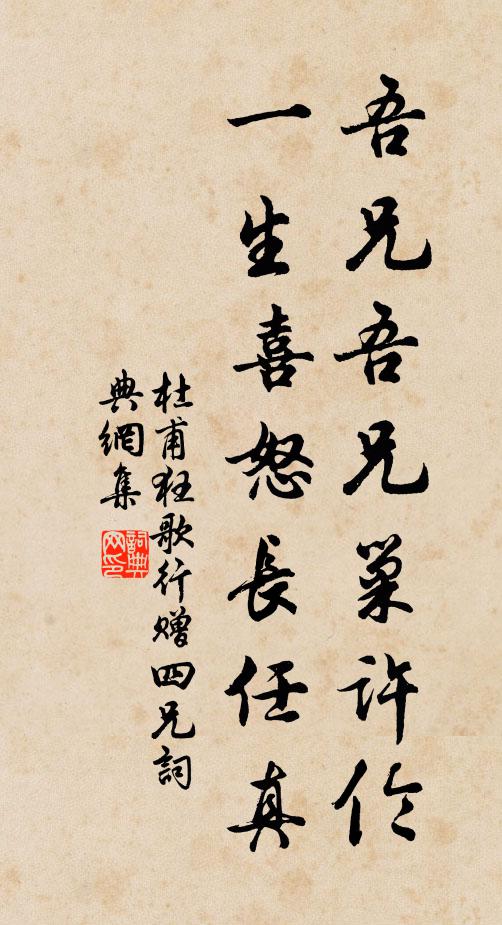 吾兄吾兄巢许伦
一生喜怒長任真
杜甫狂歌行赠四兄詞
典網集
詞典
网印